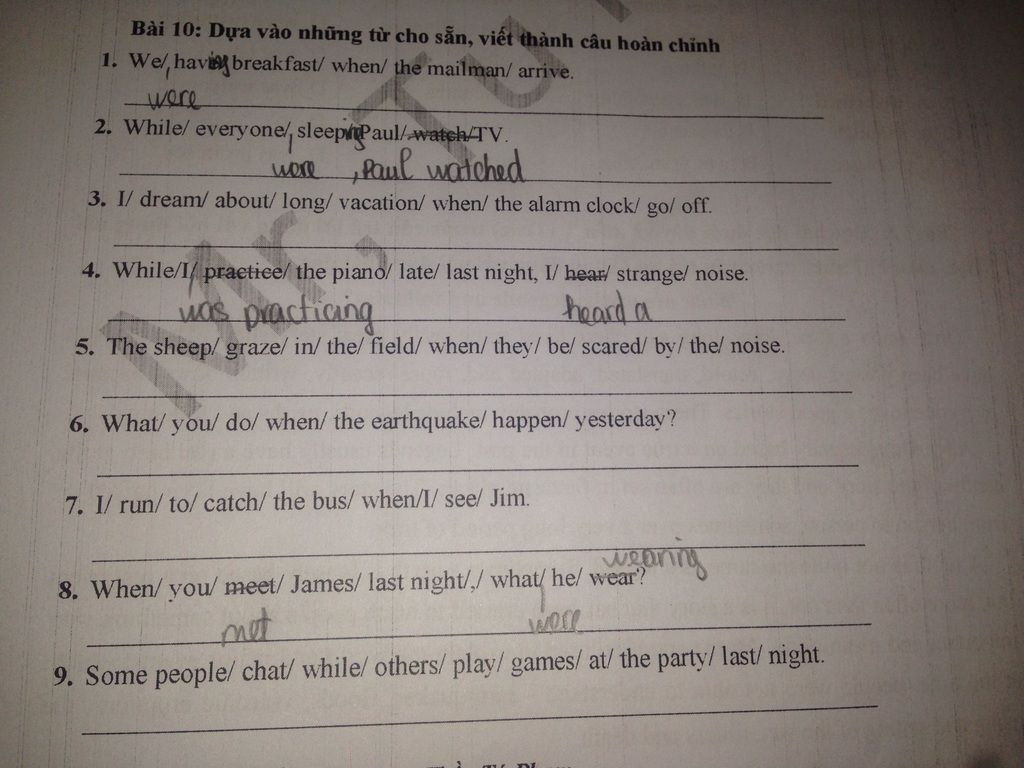 Bài 10: Dựa vào những từ cho sẵn, viết thành câu hoàn chỉnh
1. We/ having breakfast/ when/ the mailman/ arrive.
were
2. While/ everyone/ sleeping Paul/ watch/ TV.
were , Paul watched
3. I/ dream/ about/ long/ vacation/ when/ the alarm clock/ go/ off.
4. While/I/ practice/ the piano/ late/ last night, I/ hear/ strange/ noise.
was practicing heard a
5. The sheep/ graze/ in/ the/ field/ when/ they/ be/ scared/ by/ the/ noise.
6. What/ you/ do/ when/ the earthquake/ happen/ yesterday?
7. I/ run/ to/ catch/ the bus/ when/I/ see/ Jim.
wearing
8. When/ you/ meet/ James/ last night/,/ what/ he/ wear?
met were
9. Some people/ chat/ while/ others/ play/ games/ at/ the party/ last/ night.
Mr. Tu